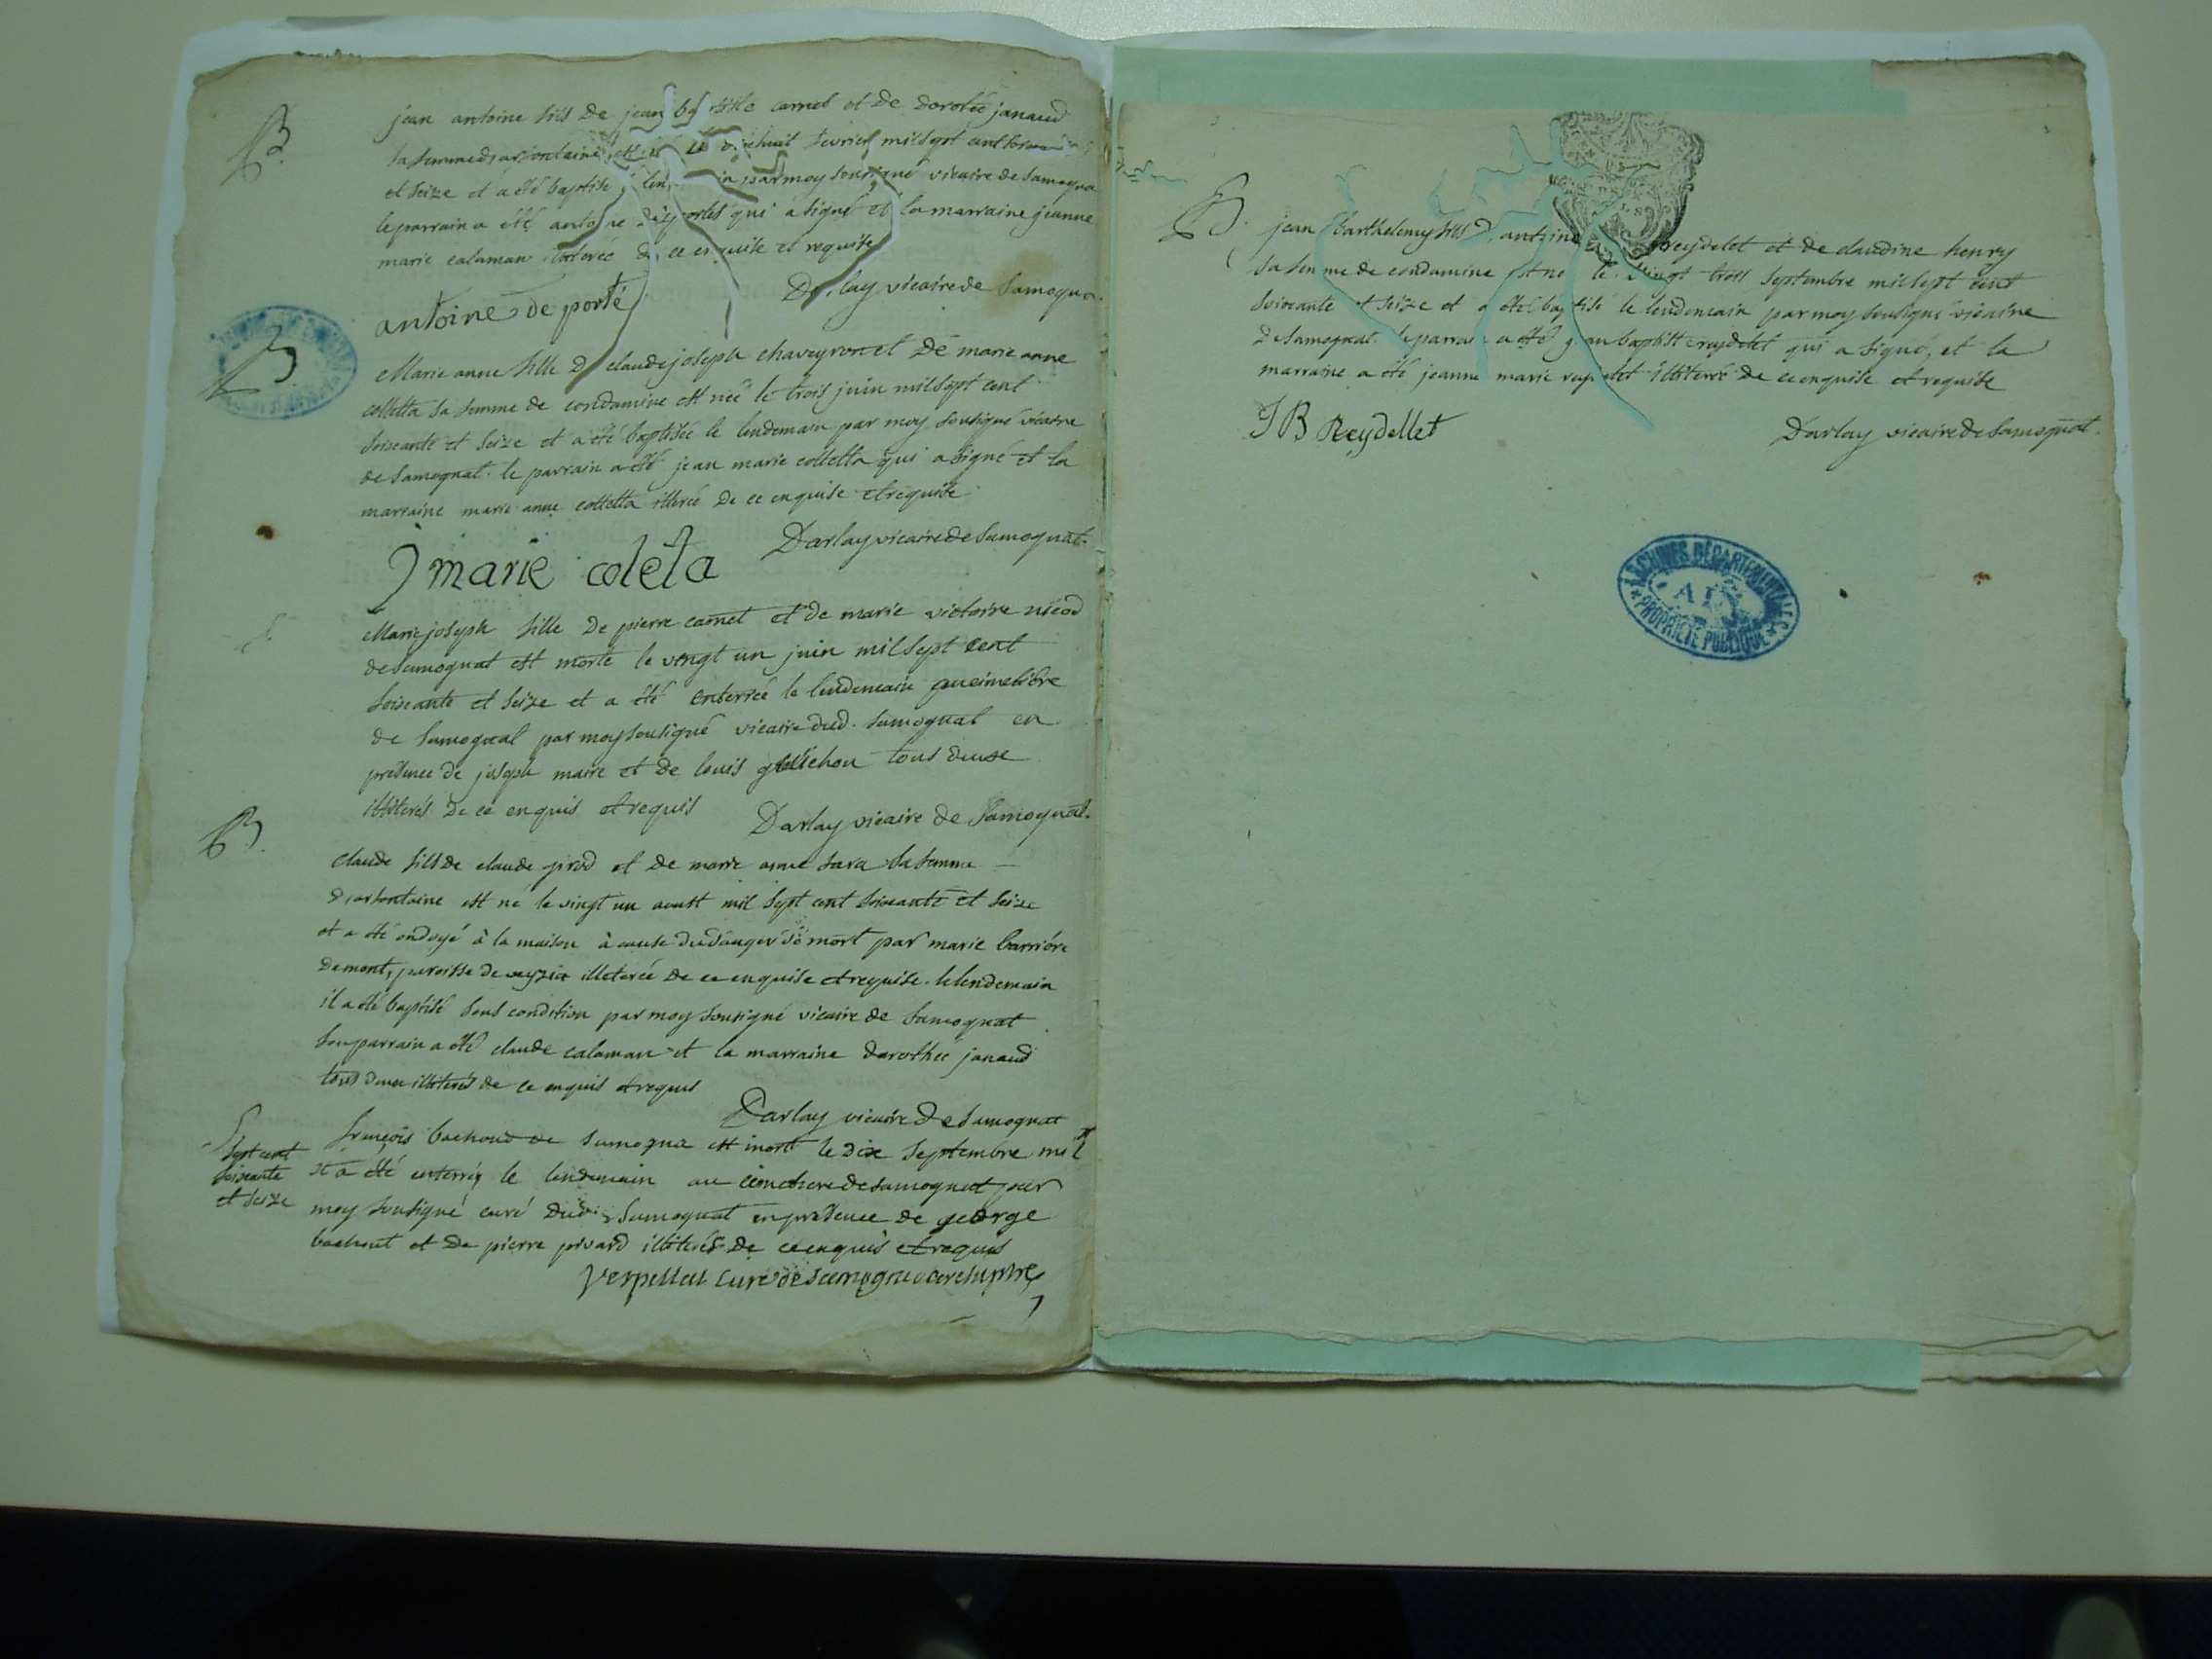 B.
jean antoine fils de jean carnet et de dorotée janaud
sa femme d'arfontaine est le dixhuit fevrier mil sept cent
et seize et a été baptisé par moy sousigné vicaire de samogna
le parrain a été antoine deportes qui a signé et la marraine jeanne
marie calaman de ce enquise et requise
Darlay vicaire de samogna.
antoine de porte
B
Marie anne fille de claude joseph chaveyron et de marie anne
colletta sa femme de condamine est née le trois juin mil sept cent
soixante et seize et a été baptisée le lendemain par moy sousigné vicaire
de samognat. le parrain a été jean marie colletta qui a signé et la
marraine marie anne colletta illiterée de ce enquise et requise
Darlay vicaire de samognat.
J marie coleta
Marie joseph fille de pierre carnet et de marie victoire nicod
de samognat est morte le vingt un juin mil sept cent
soixante et seize et a été enterrée le lendemain au cimetière
de samognat par moy sousigné vicaire dud. samognat en
présence de joseph maire et de louis tous deux
illiterés de ce enquis et requis
Darlay vicaire de samognat.
B.
claude fils de claude girod et de marie anne sara sa femme
d'arfontaine est né le vingt un aoust mil sept cent soixante et seize
et a été ondoyé à la maison à cause du danger de mort par marie barriere
de mont, paroisse de veyzia illeterée de ce enquise et requise. le lendemain
il a été baptisé sous condition par moy sousigné vicaire de samognat
son parrain a été claude calaman et la marraine darothée janaud
tous deux illiterés de ce enquis et requis
Darlay vicaire de samognat
françois bachoud de samogna est mort le dix septembre mil
sept cent
soixante
et seize
et a été enterré le lendemain au cimetiere de samognat par
moy sousigné curé dudit samognat en présence de george
bachout et de pierre pivard illiterés de ce enquis et requis
Verpillat curé de samogna archiprtre
B.
jean barthelemy fils d'antoine reydelet et de claudine henry
sa femme de condamine est né le vingt trois septembre mil sept cent
soixante et seize et a été baptisé le lendemain par moy sousigné vicaire
de samognat. le parrain a été jean baptiste reydelet qui a signé, et la
marraine a été jeanne marie illiterée de ce enquise et requise
J B Reydellet
Darlay vicaire de samognat.
ARCHIVES DÉPARTEMENTALES
AIN
PROPRIÉTÉ PUBLIQUE